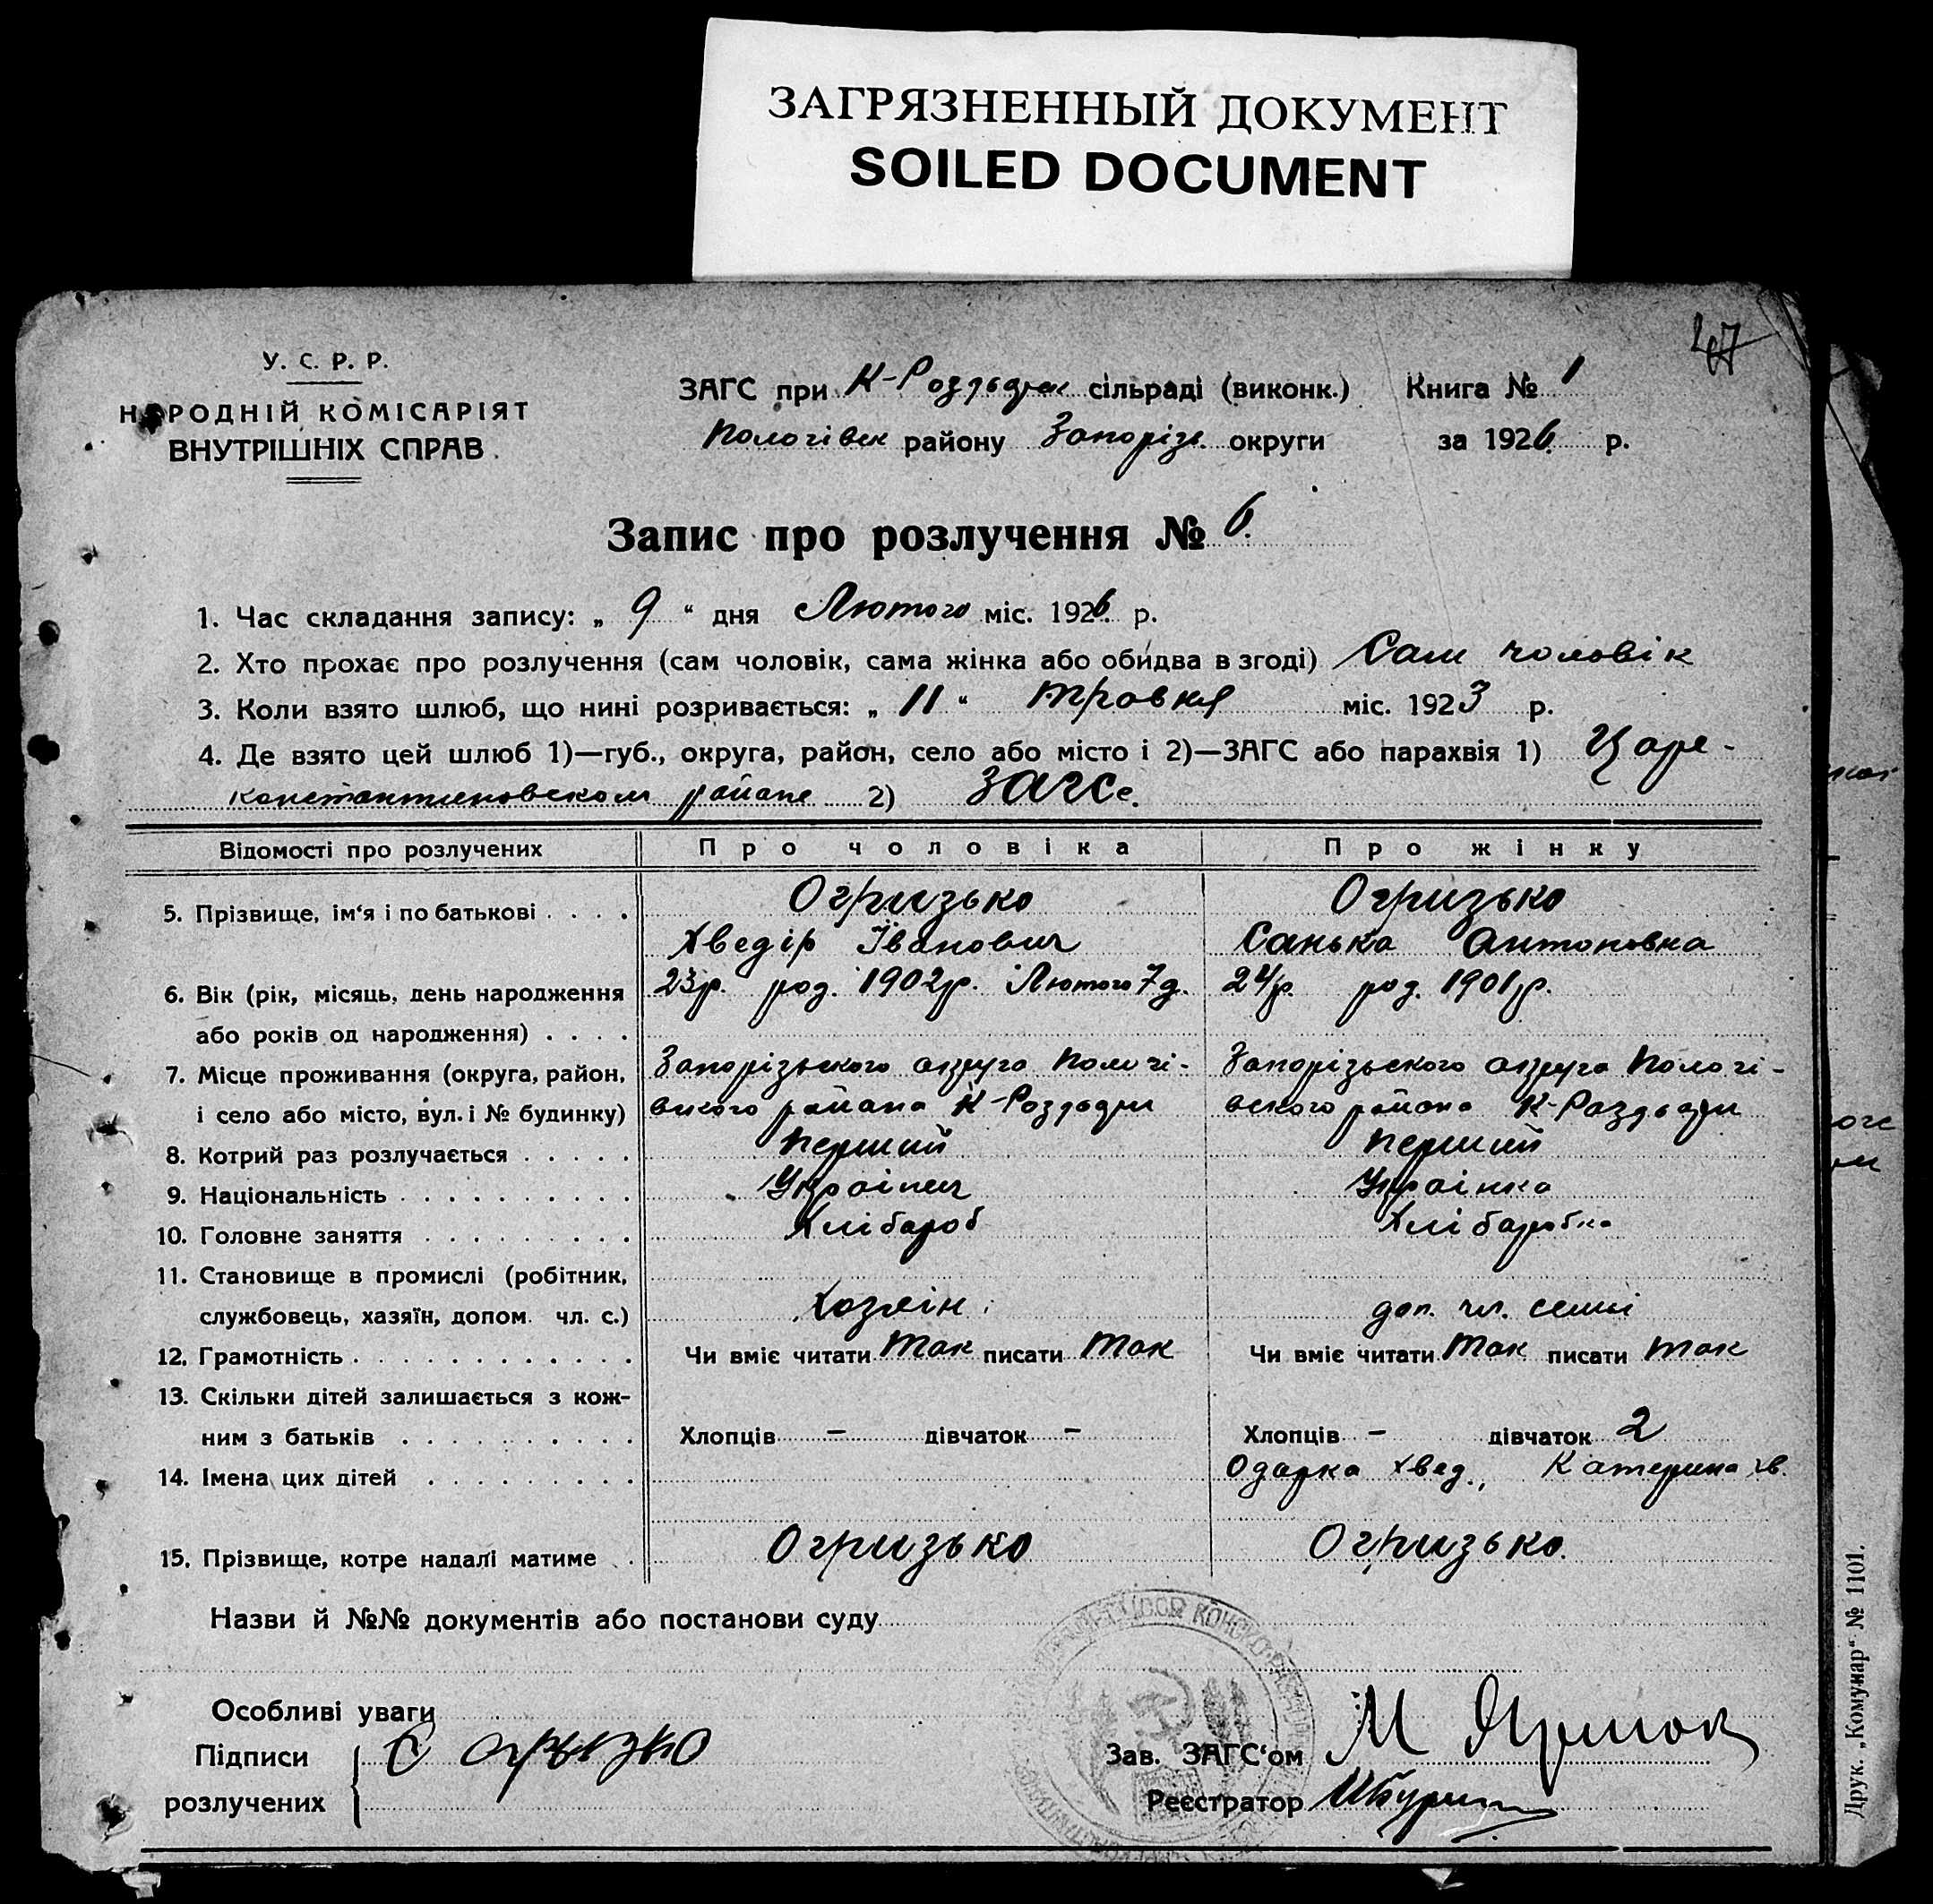 ЗАГРЯЗНЕННЫЙ ДОКУМЕНТ
SOILED DOCUMENT
47
У. С. Р. Р.
НАРОДНІЙ КОМІСАРІЯТ
ВНУТРІШНІХ СПРАВ.
ЗАГС при К-Роздьорск сільраді (виконк.) Книга № 1
Пологівск району Запоріз. округи за 1926 р.
Запис про розлучення № 6.
1. Час складання запису: „ 9 “ дня Лютого міс. 1926. р.
2. Хто прохає про розлучення (сам чоловік, сама жінка або обидва в згоді) Сам чоловік
3. Коли взято шлюб, що нині розривається: „ 11 “ травня міс. 1923 р.
4. Де взято цей шлюб 1)—губ., округа, район, село або місто і 2)—ЗАГС або парахвія 1) Царе-
константиновском районе 2) ЗАГСе.
Відомості про розлучених Про чоловіка Про жінку
5. Прізвище, ім‘я і по батькові . . . . Огризько Огризько
Хведір Іванович Санька Антоновна
6. Вік (рік, місяць, день народження 23р. род. 1902р. Лютого 7 д. 24р. род. 1901р.
або років од народження) . . . .
7. Місце проживання (округа, район, Запорізького округа Пологі- Запорізького округа Пологі-
і село або місто, вул. і № будинку) вського района К-Роздьори вського района К-Роздьори
8. Котрий раз розлучається . . . . . перший перший
9. Національність . . . . . . . . . . Українец Українка
10. Головне заняття . . . . . . . . . Хлібароб Хлібаробка
11. Становище в промислі (робітник,
службовець, хазяїн, допом. чл. с.) Хозяін доп. чл. семьі
12. Грамотність . . . . . . . . . . . . Чи вміє читати Так писати Так Чи вміє читати Так писати Так
13. Скільки дітей залишається з кож-
ним з батьків . . . . . . . . . . Хлопців – дівчаток – Хлопців – дівчаток 2
14. Імена цих дітей . . . . . . . . . Одарка Хвед., Катерина Хв.
15. Прізвище, котре надалі матиме . Огризько Огризько.
Назви й №№ документів або постанови суду
Особливі уваги
Підписи
розлучених
Огрызко
Зав. ЗАГС‘ом М
Реєстратор
Друк. „Комунар“ № 1101.